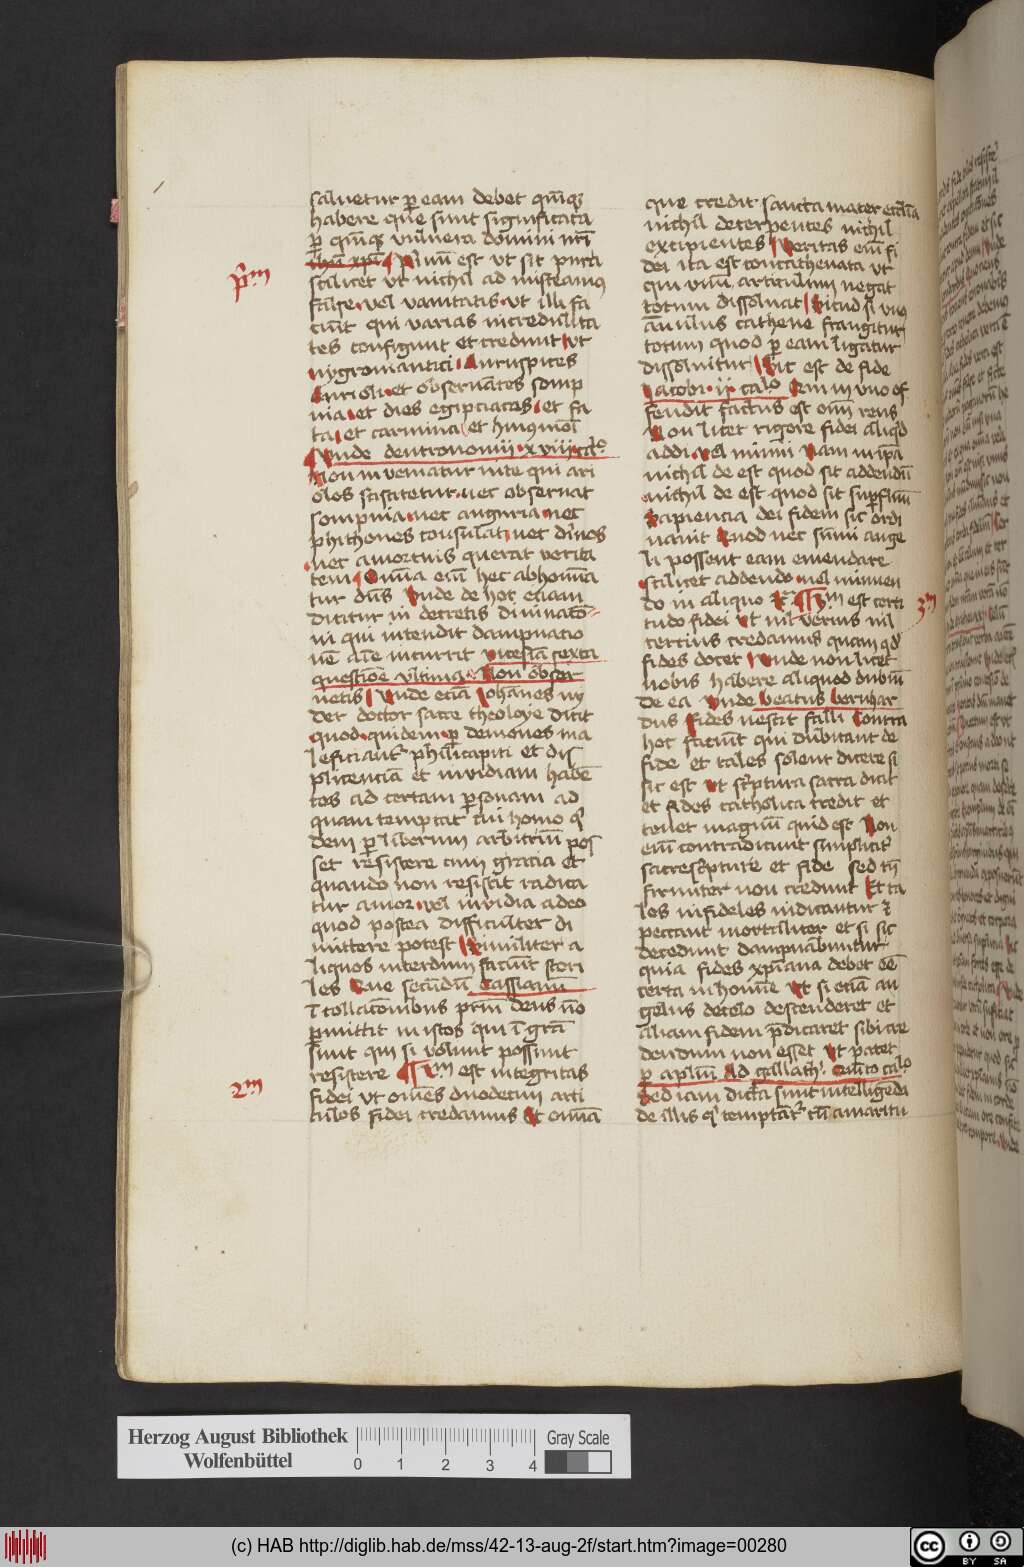 saluetur per eam debet quinqz
habere que sunt significata
per quinqz vulnera domini nr̄i
ihū xp̄i Primū est vt sit pura
scilicet vt nichil ad misceamꝰ
false vel vanitatis vt illi fa
ciūt qui varias incredulita
tes confingunt et credunt vt
nygromantici Auruspices
Arioli et obseruātes somp
nia et dies egipciacos et fa
ta et carmina et hmōi
Vnde deutronomii xviii cal°
Non inveniatur in te qui ari
olos sciscitetur nec obseruat
sompnia nec auguria nec
phithones consulat nec diuīos
nec a mortuis querat verita
tem Omīa eīm hec abhomīa
tur dn̄s Vnde de hoc eciam
dicitur in decretis diuinacō
ni qui intendit dampnacio
nē aīe incurrit vicesīa sexta
questiōe vltima Non obser
uetis Vnde eciā Johānes ny
der doctor sacre theoloye dicit
quod quidem per demones ma
leficiant̄ philicapiti et dis
plicenciā et inuidiam habē
tes ad certam personam ad
quam temptat cui homo qͥ
dem per liberum arbitriū pos
set resistere cum gracia et
quando non resistit radica
tur amor vel inuidia adeo
quod postea difficulter di
mittere potest Similiter a
liquos interdum faciūt steri
les Que secūdū Cassianū
ī collacōibus prim̄ deus nō
permittit in istos qui ī grā
sunt qui si volunt possunt
resistere ¶ 2m est integritas
fidei vt om̄es duodecim arti
culos fidei credamus Et omīa
que credit sancta mater ecclīa
nichil decerpentes nichil
excipientes Veritas eīm fi
dei ita est concathenata vt
qui vnū articulum negat
totum dissoluat Sicud si vnꝰ
anulus cathene frangitur
totum quod per eam ligatur
dissoluitur Sic est de fide
Jacobi ij cal° Qui in vno of
fendit factus est om̄i reus
Non licet rigore fidei aliqd̄
addi vel minui Nam in ip̄a
nichil de est quod sit addendū
nichil de est quod sit superfluū
Sapiencia dei fidem sic ordi
nauit Quod nec sūmi ange
li possent eam emendare
scilicet addendo uel minuen
do in aliquo &c ¶ 3m est certi
tudo fidei Vt nil verius nil
certius credamus quam qd̄
fides docet Vnde non licet
nobis habere aliquod dubiū
De ea Vnde beatus bernhar
dus Fides nescit falli Contra
hoc faciūt qui dubitant de
fide et tales solent dicere si
sic est vt scriptura sacra dicit
et fides catholica credit et
tenet magnū quid est Non
eīm contradicunt simplicit̄
sacre scripture et fide sed tn̄
firmiter non credunt Et ta
les infideles iudicantur &
peccant mortaliter et si sic
decedunt dampnabuntur
quia fides xp̄iana debet eē
certa in homīe Vt si eciā an
gelus de celo descenderet et
aliam fidem p̄dicaret sibi cre
dendum non esset Vt patet
per apl̄m Ad gallath. Quīto cal°
Sed iam dicta sunt intelligēda
de illis qͥ temptāt̄ cū amaritu
pm
2m
3m
Herzog August Bibliothek
Wolfenbüttel
0 1 2 3 4
Gray Scale
(c) HAB http://diglib.hab.de/mss/42-13-aug-2f/start.htm?image=00280
cc
BY SA